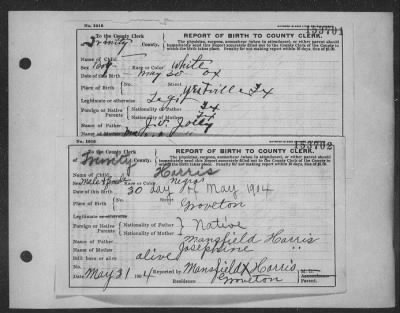 No. 2018
153701
To the County Clerk
REPORT OF BIRTH TO COUNTY CLERK.
Trinity County.
The physician, surgeon, accoucheur (when in attendance), or parent should
immediately send this Report accurately filled out to the County Clerk of the County in
which the birth takes place. Penalty for not making report within 30 days, fine of $10
Name of Child
Sex Boy Race or Color White
Date of this Birth May 20
No. Street
Place of Birth Tex
Legitimate or otherwise Legit
Foreign or Native Parents Nationality of Father Tex
Nationality of Mother Tex
Name of Father J. W. Jolly
Name of Mother
No. 2018
153702
To the County Clerk
REPORT OF BIRTH TO COUNTY CLERK.
Trinity County.
The physician, surgeon, accoucheur (when in attendance), or parent should
immediately send this Report accurately filled out to the County Clerk of the County in
which the birth takes place. Penalty for not making report within 30 days, fine of $10
Name of Child Harris
Race or Color Negros
Date of this Birth 30 day of May 1914
No. Street
Place of Birth Groveton
Legitimate
Foreign or Native Parents Nationality of Father } Native
Nationality of Mother
Name of Father Mansfield Harris
Name of Mother Josephine "
Still born or alive alive
Date May 31 1914 Reported by Mansfield X Harris M. D.
Residence Groveton Parent.